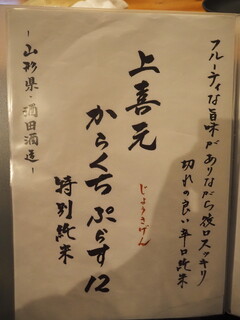 フルーティな旨味がありながら後口スッキリ
切れの良い辛口純米
上喜元
じょうきげん
からくちぷらす12
特別純米
-山形県・酒田酒造-